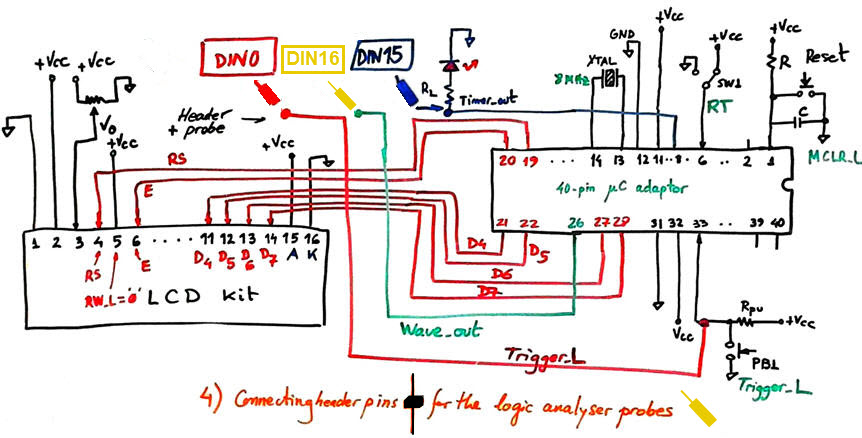 +Vcc
+Vcc
Vo
+Vcc
DIN0
DIN16
DIN15
Header
+ probe
RL
Timer_out
8 MHz
XTAL
GND
+Vcc
+Vcc
SW1
RT
+Vcc
R
Reset
C
MCLR_L
RS
E
+Vcc
20 19 .... 14 13 12 11 .. 8 . 6 .. 2 1
40-pin µC adaptor
21 22 26 27 28 31 32 33 .. 39 40
1 2 3 4 5 6 .... 11 12 13 14 15 16
D4 D5 D6 D7 A K
RS
RW_L="0"
E
LCD kit
D4
D5
D6
D7
Wave_out
Trigger_L
Vcc
Rpu
+Vcc
PB1
Trigger_L
4) Connecting header pins for the logic analyser probes